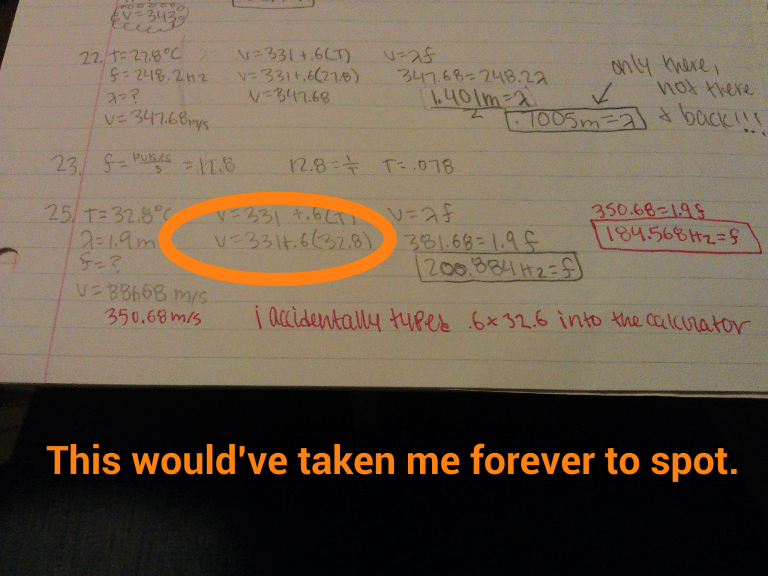 V=343
22. T=27.8°C V=331+.6(T) V=λf
f=248.2Hz V=331+.6(27.8) 347.68=248.2λ
λ=? V=347.68 1.401m=λ
V=347.68m/s 2 .7005m=λ
only there,
not there
& back!!!
23. f=pulses/s=12.8 12.8=1/T T=.078
25. T=32.8°C V=331+.6(T) V=λf
λ=1.9m V=331+.6(32.8) 381.68=1.9f
f=? 200.884Hz=f
V=
350.68=1.9f
184.568Hz=f
350.68m/s i accidentally types .6x32.6 into the calculator
This would've taken me forever to spot.